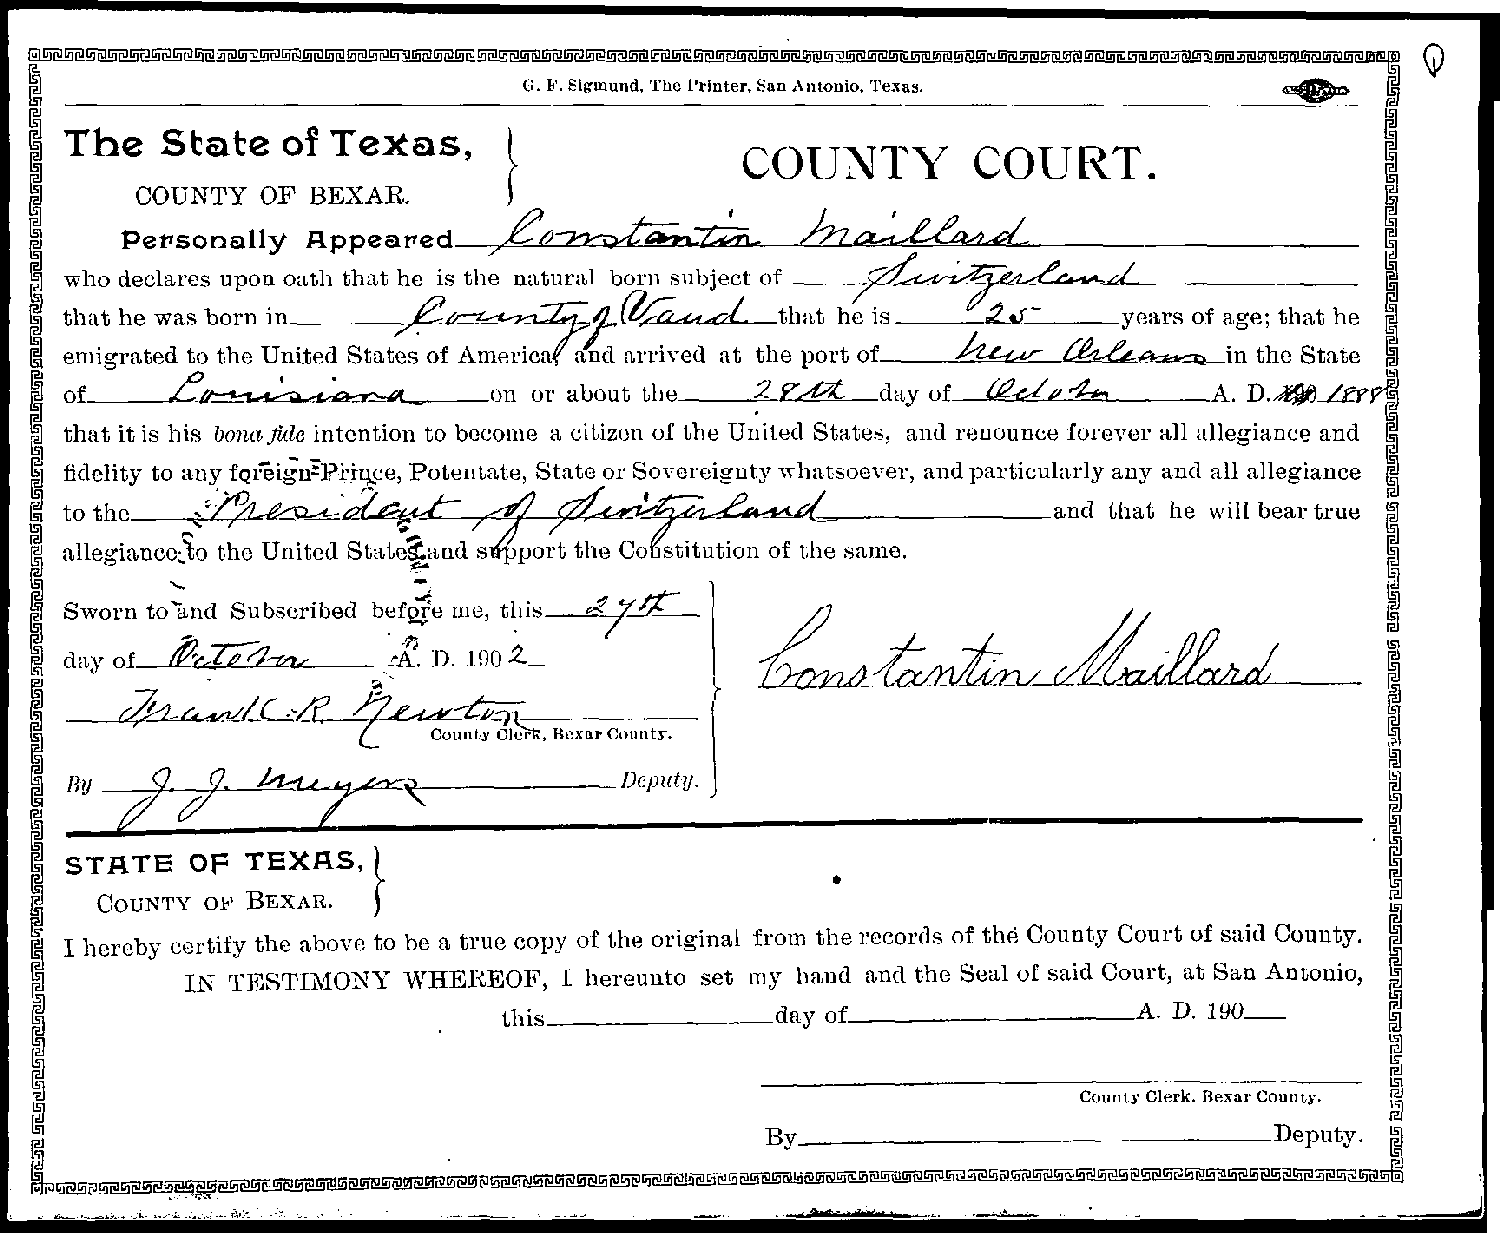 G. F. Sigmund, The Printer, San Antonio, Texas.
The State of Texas,
COUNTY OF BEXAR.
COUNTY COURT.
Personally Appeared Constantin Maillard
who declares upon oath that he is the natural born subject of Switzerland
that he was born in County of Vaud that he is 25 years of age; that he
emigrated to the United States of America, and arrived at the port of New Orleans in the State
of Louisiana on or about the 28th day of October A. D. 1888
that it is his bona fide intention to become a citizen of the United States, and renounce forever all allegiance and
fidelity to any foreign Prince, Potentate, State or Sovereignty whatsoever, and particularly any and all allegiance
to the President of Switzerland and that he will bear true
allegiance to the United States and support the Constitution of the same.
Sworn to and Subscribed before me, this 27th
day of October A. D. 1902
Constantin Maillard
Frank R Newton
County Clerk, Bexar County.
By J. J. Meyers Deputy.
STATE OF TEXAS,
COUNTY OF BEXAR.
I hereby certify the above to be a true copy of the original from the records of the County Court of said County.
IN TESTIMONY WHEREOF, I hereunto set my hand and the Seal of said Court, at San Antonio,
this day of A. D. 190
County Clerk. Bexar County.
By Deputy.